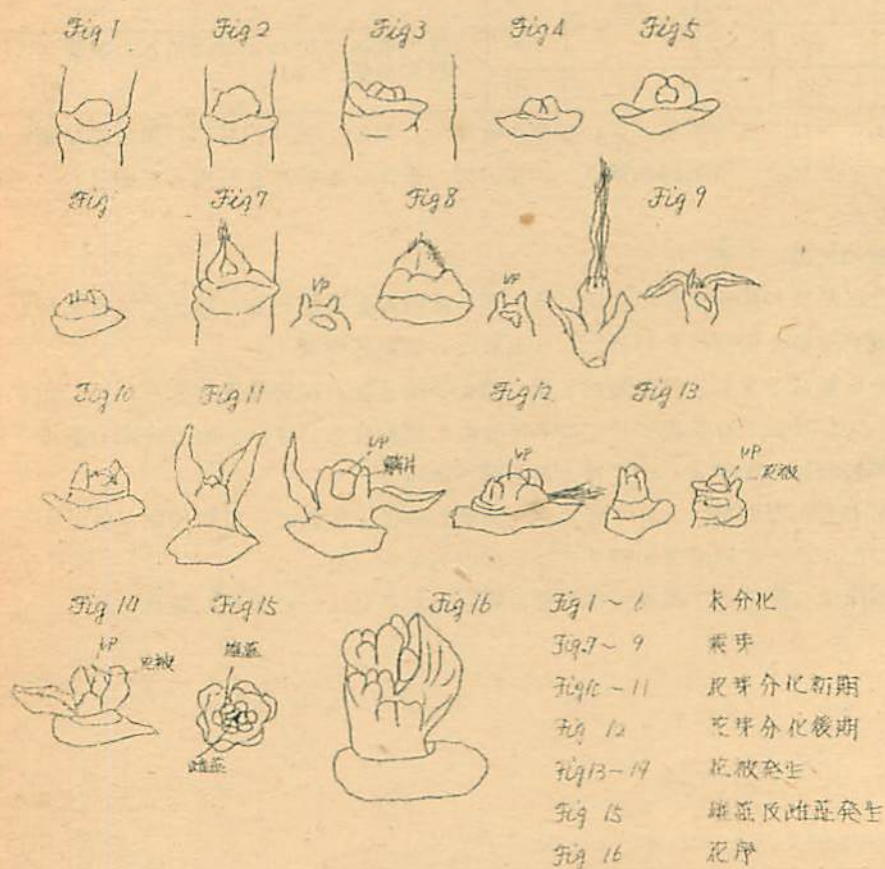 Fig 1 Fig 2 Fig 3 Fig 4 Fig 5
Fig Fig 7 Fig 8 Fig 9
VP VP
Fig 10 Fig 11 Fig 12 Fig 13
VP VP VP
鱗片 花被
Fig 14 Fig 15 Fig 16
VP 花被 雄蕊
雌蕊
Fig 1 ~ 6 未分化
Fig 7 ~ 9 葉芽
Fig 10 ~ 11 花芽分化初期
Fig 12 花芽分化後期
Fig 13 ~ 14 花被発生
Fig 15 雄蕊及雌蕊発生
Fig 16 花序